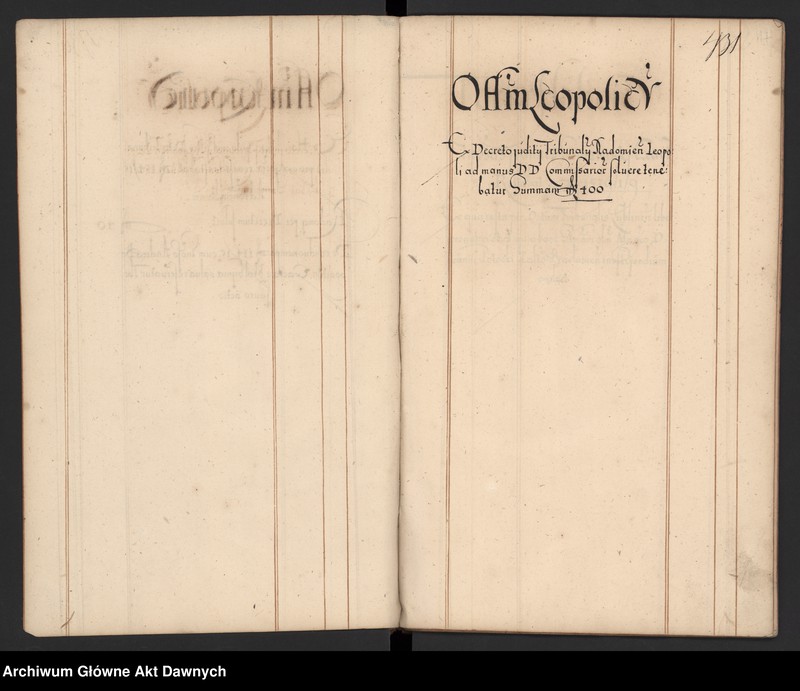 431
E Decreto judity Tribunalÿ Radomien Leopo
li ad manus DD Commissarior solvere tene:
batur Summam 400
Archiwum Główne Akt Dawnych